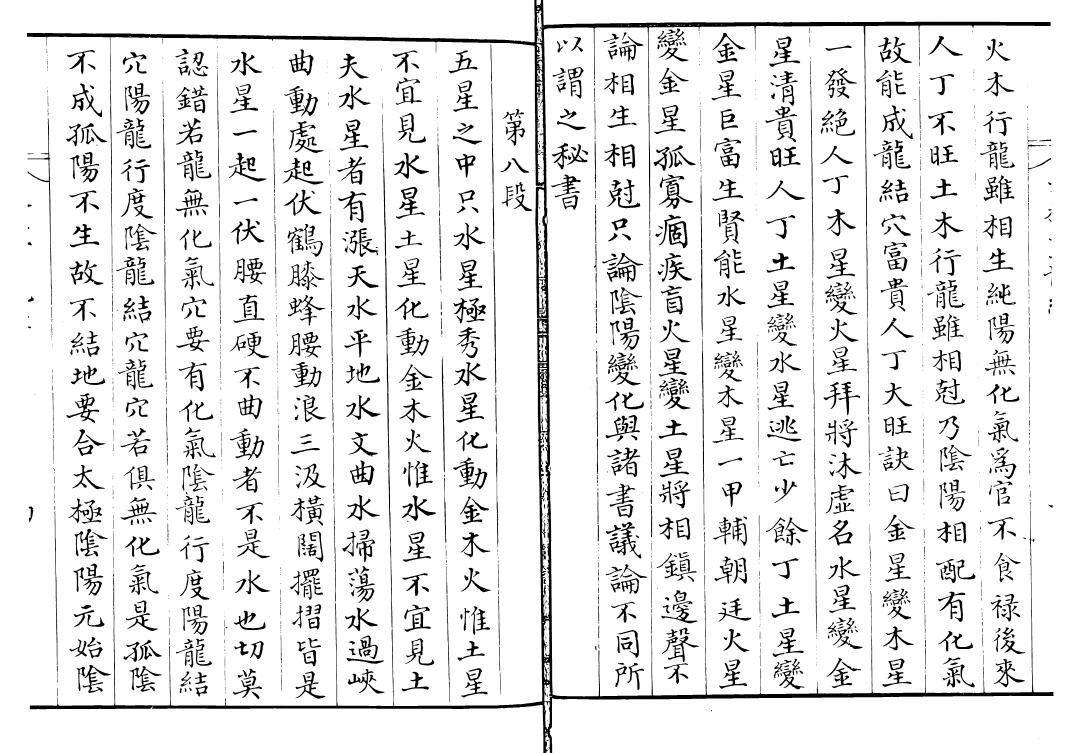 火木行龍雖相生純陽無化氣爲官不食祿後來
人丁不旺土木行龍雖相尅乃陰陽相配有化氣
故能成龍結穴富貴人丁大旺訣曰金星變木星
一發絶人丁木星變火星拜將沐虛名水星變金
星清貴旺人丁土星變水星逃亡少餘丁土星變
金星巨富生賢能水星變木星一甲輔朝廷火星
變金星孤寡痼疾盲火星變土星將相鎮邊聲不
論相生相尅只論陰陽變化與諸書議論不同所
以謂之秘書
第八段
五星之中只水星極秀水星化動金木火惟土星
不宜見水星土星化動金木火惟水星不宜見土
夫水星者有漲天水平地水文曲水掃蕩水過峽
曲動處起伏鶴膝蜂腰動浪三汲橫闊擺摺皆是
水星一起一伏腰直硬不曲動者不是水也切莫
認錯若龍無化氣穴要有化氣陰龍行度陽龍結
穴陽龍行度陰龍結穴龍穴若俱無化氣是孤陰
不成孤陽不生故不結地要合太極陰陽元始陰